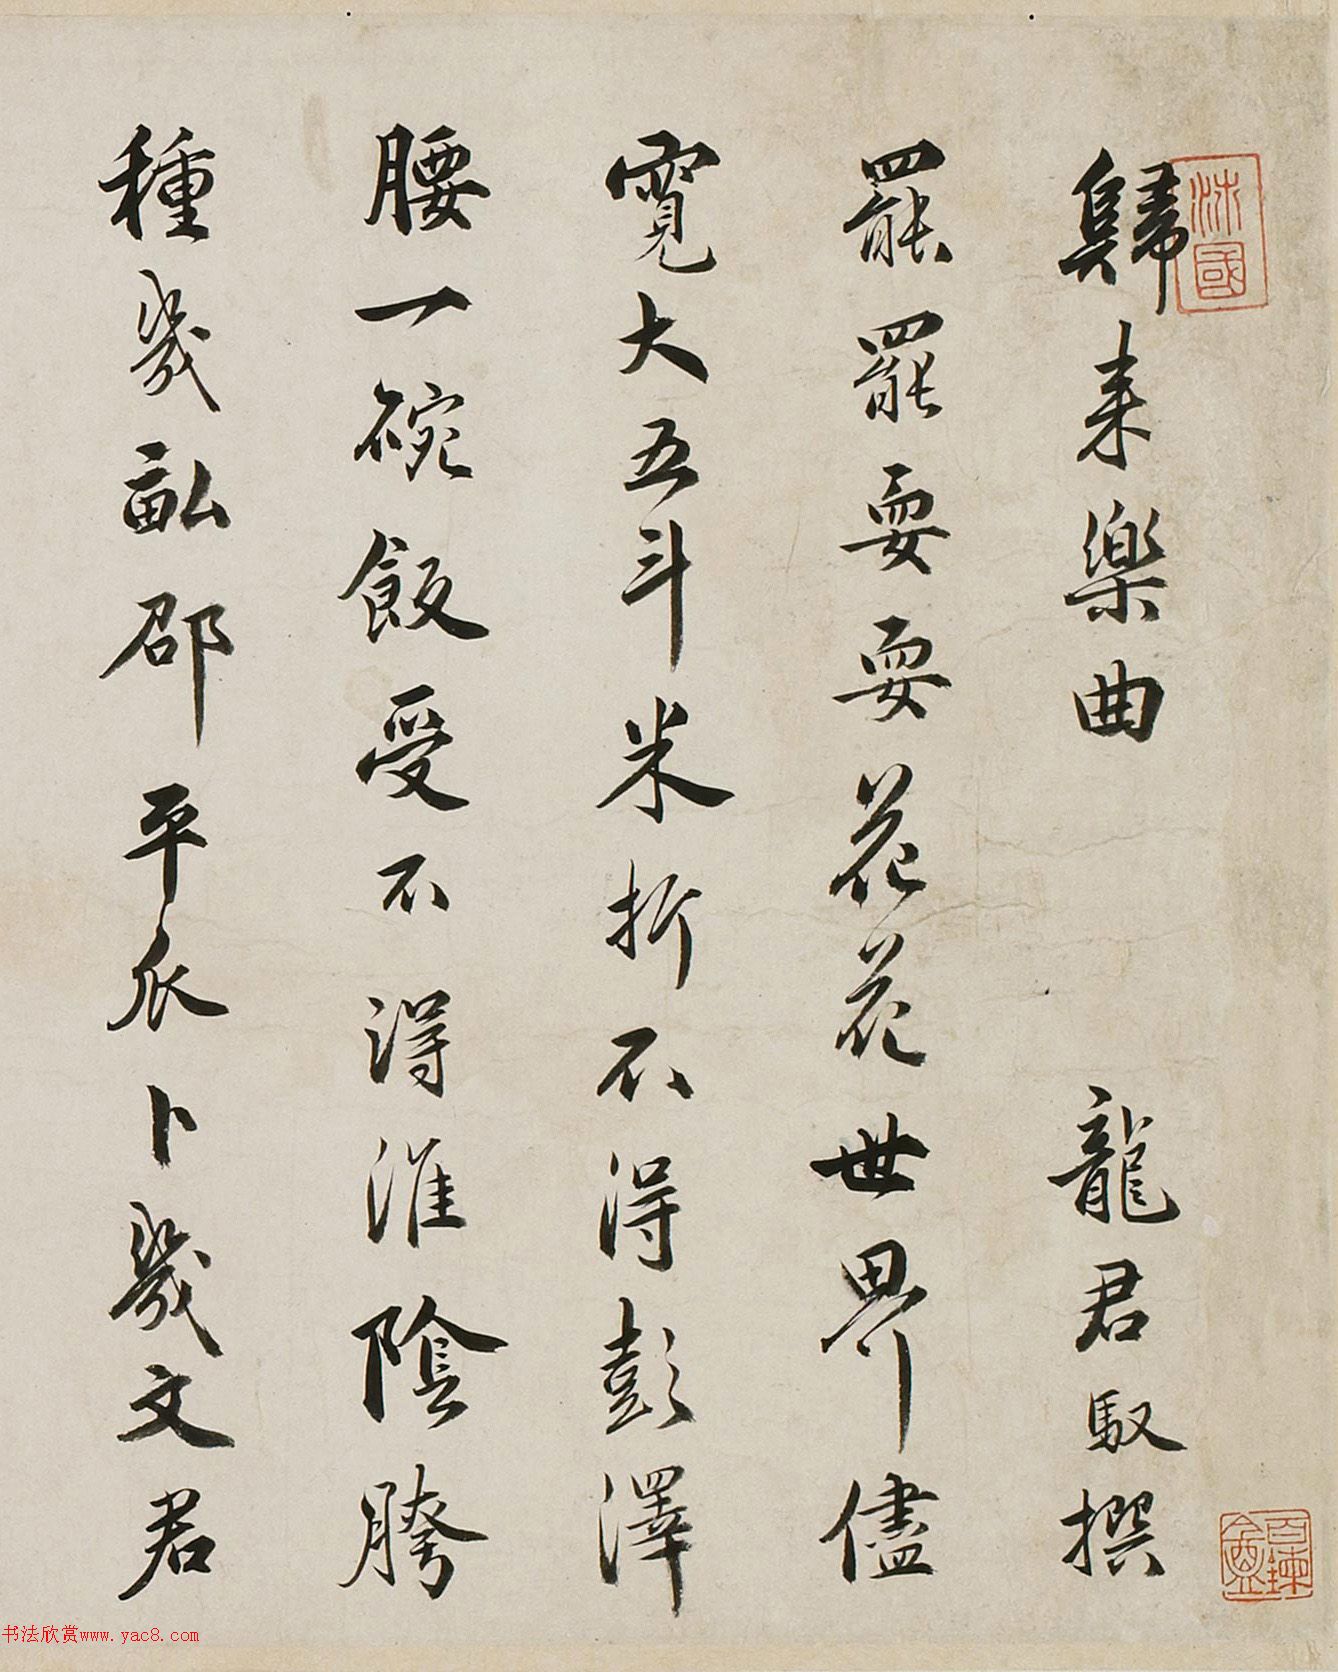 歸来樂曲 龍君馭撰
罷罷耍耍花花世界儘
寬大五斗米折不得彭澤
腰一碗飯受不得淮陰胯
種幾畝邵平瓜卜幾文君
沐國
书法欣赏www.yac8.com